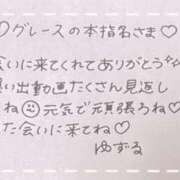 ♡グレースの本指名さま♡
会いに来てくれてありがとう
思い出動画たくさん見返し
ね☺元気で頑張ろね♡
た会いに来てね♡
ゆずる